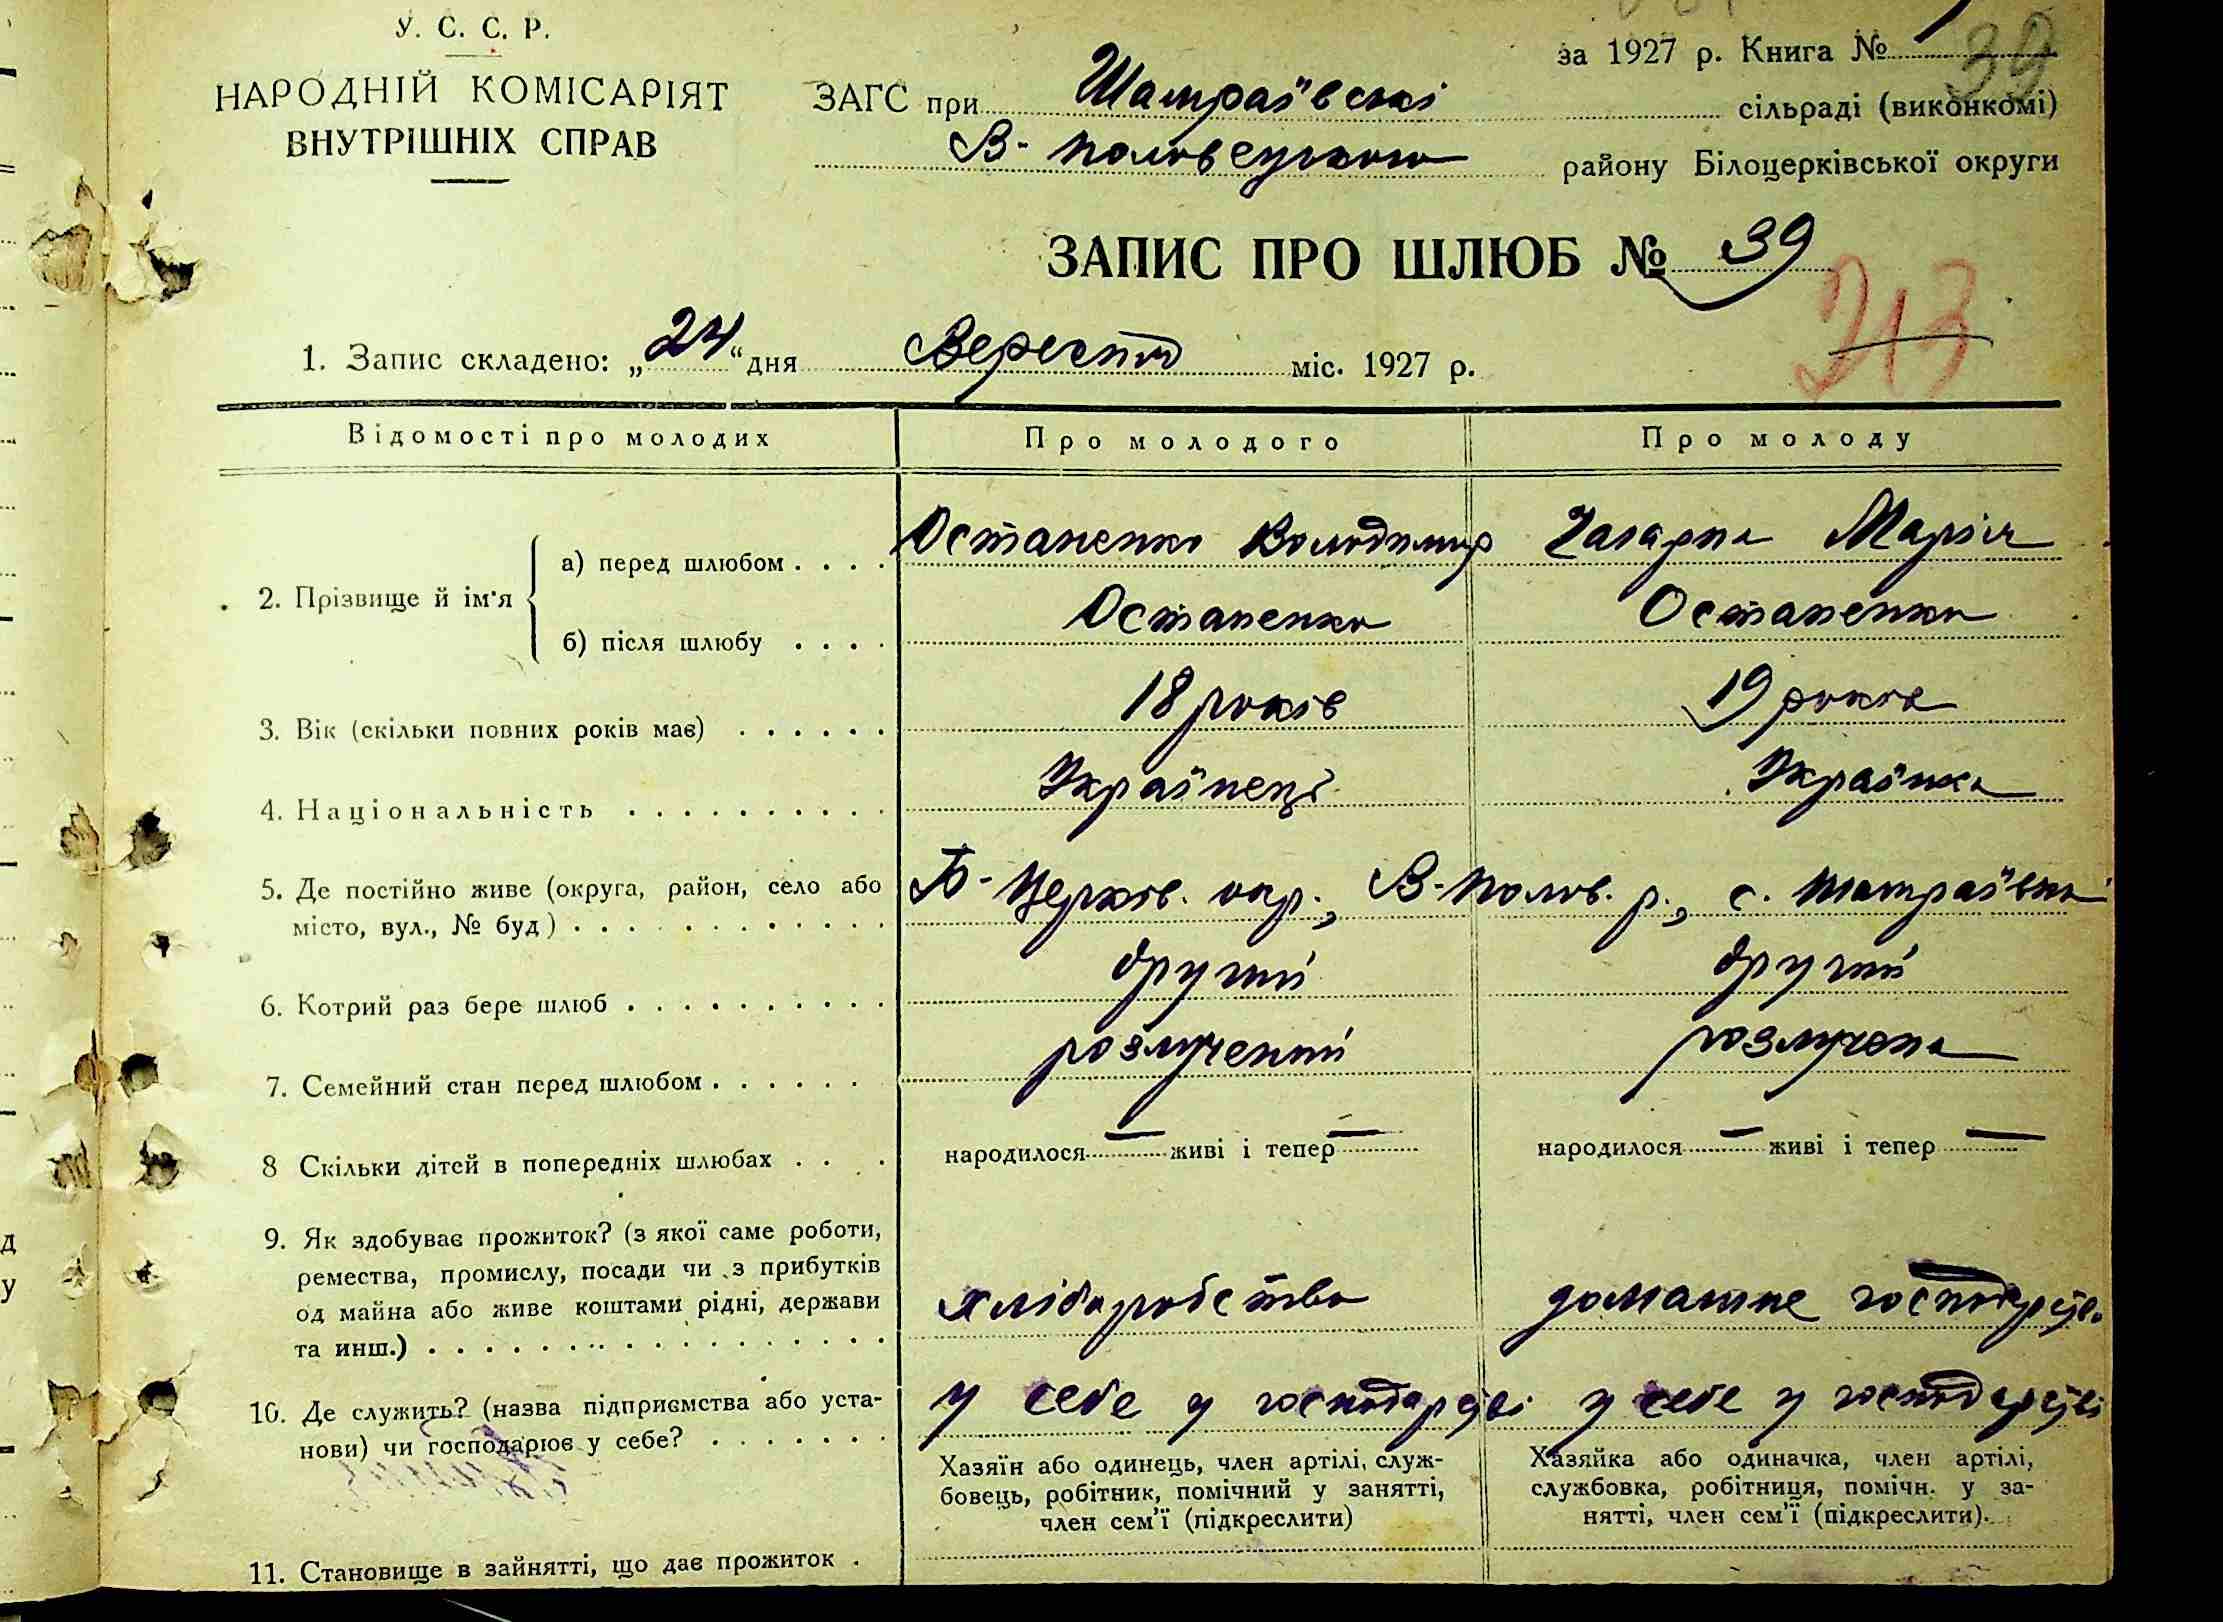 У. С. С. Р.
НАРОДНІЙ КОМІСАРІЯТ
ВНУТРІШНІХ СПРАВ
за 1927 р. Книга № 1
39
ЗАГС при Шамраївські сільраді (виконкомі)
В-Половецького району Білоцерківської округи
ЗАПИС ПРО ШЛЮБ № 39
213
1. Запис складено: „24“ дня Вересня міс. 1927 р.
Відомості про молодих Про молодого Про молоду
2. Прізвище й ім'я
а) перед шлюбом . . . . Остапенко Володимир Марія
б) після шлюбу . . . . Остапенко Остапенко
3. Вік (скільки повних років має) . . . . . . 18 років 19 років
4. Національність . . . . . . . . . . Українець Українка
5. Де постійно живе (округа, район, село або
місто, вул., № буд) . . . . . . . . . . . . Б-Церків. окр., В-Полов. р., с. Шамраївка
6. Котрий раз бере шлюб . . . . . . . . . . другий другий
7. Семейний стан перед шлюбом . . . . . . розлучений розлучена
8 Скільки дітей в попередніх шлюбах . . . . народилося — живі і тепер — народилося — живі і тепер —
9. Як здобуває прожиток? (з якої саме роботи,
ремества, промислу, посади чи з прибутків
од майна або живе коштами рідні, держави
та инш.) . . . . . . . . . . . . . . . . . хліборобство домашнє господарств.
10. Де служить? (назва підприємства або уста-
нови) чи господарює у себе? . . . . . . . у себе у господарстві у себе у господарстві
Хазяїн або одинець, член артілі, служ-
бовець, робітник, помічний у занятті,
член сем'ї (підкреслити)
Хазяйка або одиначка, член артілі,
службовка, робітниця, помічн. у за-
нятті, член сем'ї (підкреслити).
11. Становище в зайнятті, що дає прожиток .
д
у